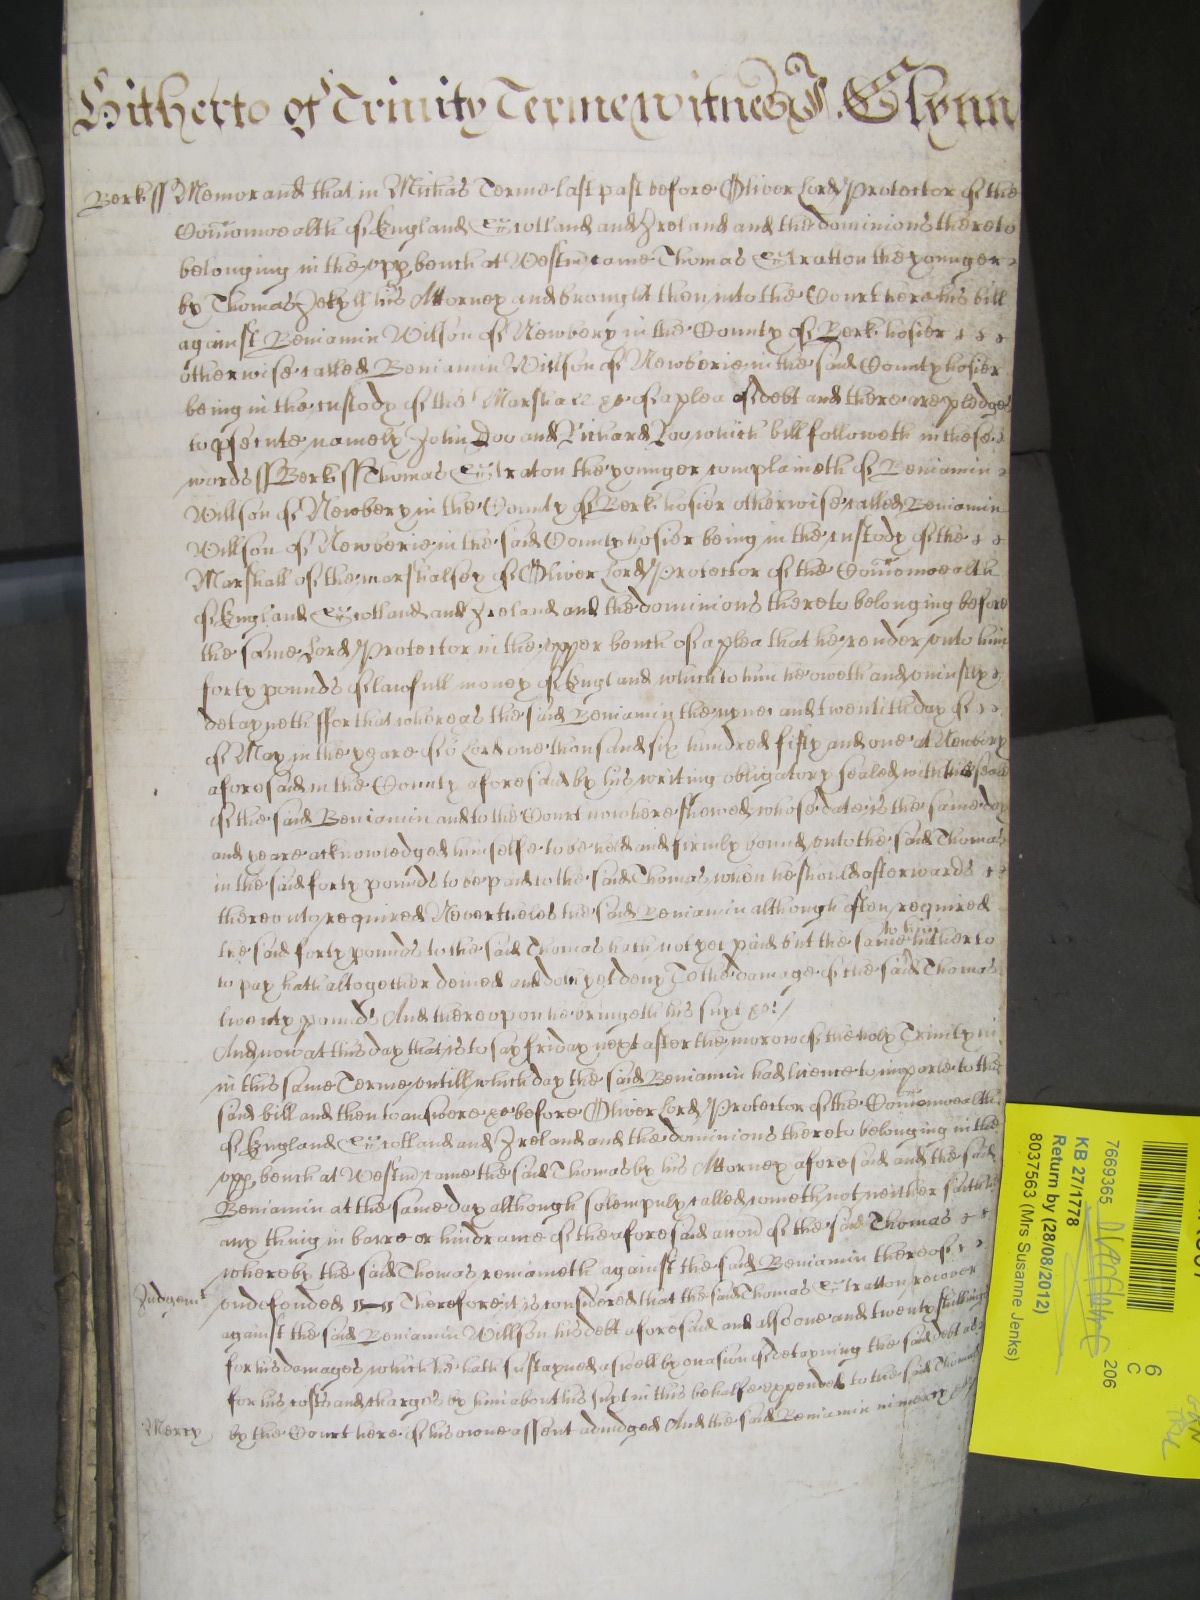 Hitherto of Trinity Terme witnes J. Glynn
Berk ss Memorand that in Michas Terme last past before Oliver Lord Protector of the
Comonwealth of England Scotland and Ireland and the dominions thereto
belonging in the upp bench at Westm came Thomas Stratton the younger
by Thomas Jekyll his Attorney and brought then into the Court here his bill
against Beniamin Wilson of Newbery in the County of Berk hosier
otherwise called Beniamin Willson of Newberie in the said County hosier
being in the custody of the Marshall &c of a plea of debt and there are pledges
to psecute namely John Doo and Richard Roo which bill followeth in these
words ss Berk ss Thomas Straton the younger complaineth of Beniamin
Willson of Newbery in the County of Berk hosier otherwise called Beniamin
Willson of Newberie in the said County hosier being in the custody of the
Marshall of the marshalsey of Oliver Lord Protector of the Comonwealth
of England Scotland and Ireland and the dominions thereto belonging before
the same Lord Protector in the upper bench of a plea that he render unto him
forty pounds of lawfull money of England which to him he oweth and uniustly
detayneth ffor that whereas the said Beniamin the nyne and twentith day of
of May in the yeare of o Lord one thousand six hundred fifty and one at Newbery
aforesaid in the County aforesaid by his writing obligatory sealed with the seale
of the said Beniamin and to the Court now here shewed whose date is the same day
and yeare acknowledged himselfe to be held and firmly bound unto the said Thomas
in the said forty pounds to be paid to the said Thomas when he should afterwards
thereunto required Nevertheles the said Beniamin although often required
the said forty pounds to the said Thomas hath not yet paid but the same to him hitherto
to pay hath altogether denied and doth yet deny To the damage of the said Thomas
twenty pounds And thereupon he bringeth his suyt &c
And now at this day that is to say friday next after the morow of the holy Trinity in
in this same Terme untill which day the said Beniamin had licence to imparle to the
said bill and then to answere &c before Oliver Lord Protector of the Comonwealth
of England Scotland and Ireland and the dominions thereto belonging in the
upp bench at Westm came the said Thomas by his Attorney aforesaid and the said
Beniamin at the same day although solempnly called cometh not neither saith
any thing in barre or hindrance of the aforesaid accon of the said Thomas
whereby the said Thomas remaineth against the said Beniamin thereof
Judgemt undefended Therefore it is considered that the said Thomas Stratton recover
against the said Beniamin Willson his debt aforesaid and also one and twenty shillings
for his damages which he hath sustayned aswell by occasion of detayning the said debt as
for his costs and charges by him about his suyt in this behalfe expended to the said Thomas
Mercy by the Court here of his owne assent adiudged And the said Beniamin in mercy &c
7669365
KB 27/1778
Return by (28/08/2012)
8037563 (Mrs Susanne Jenks)
206
6
C